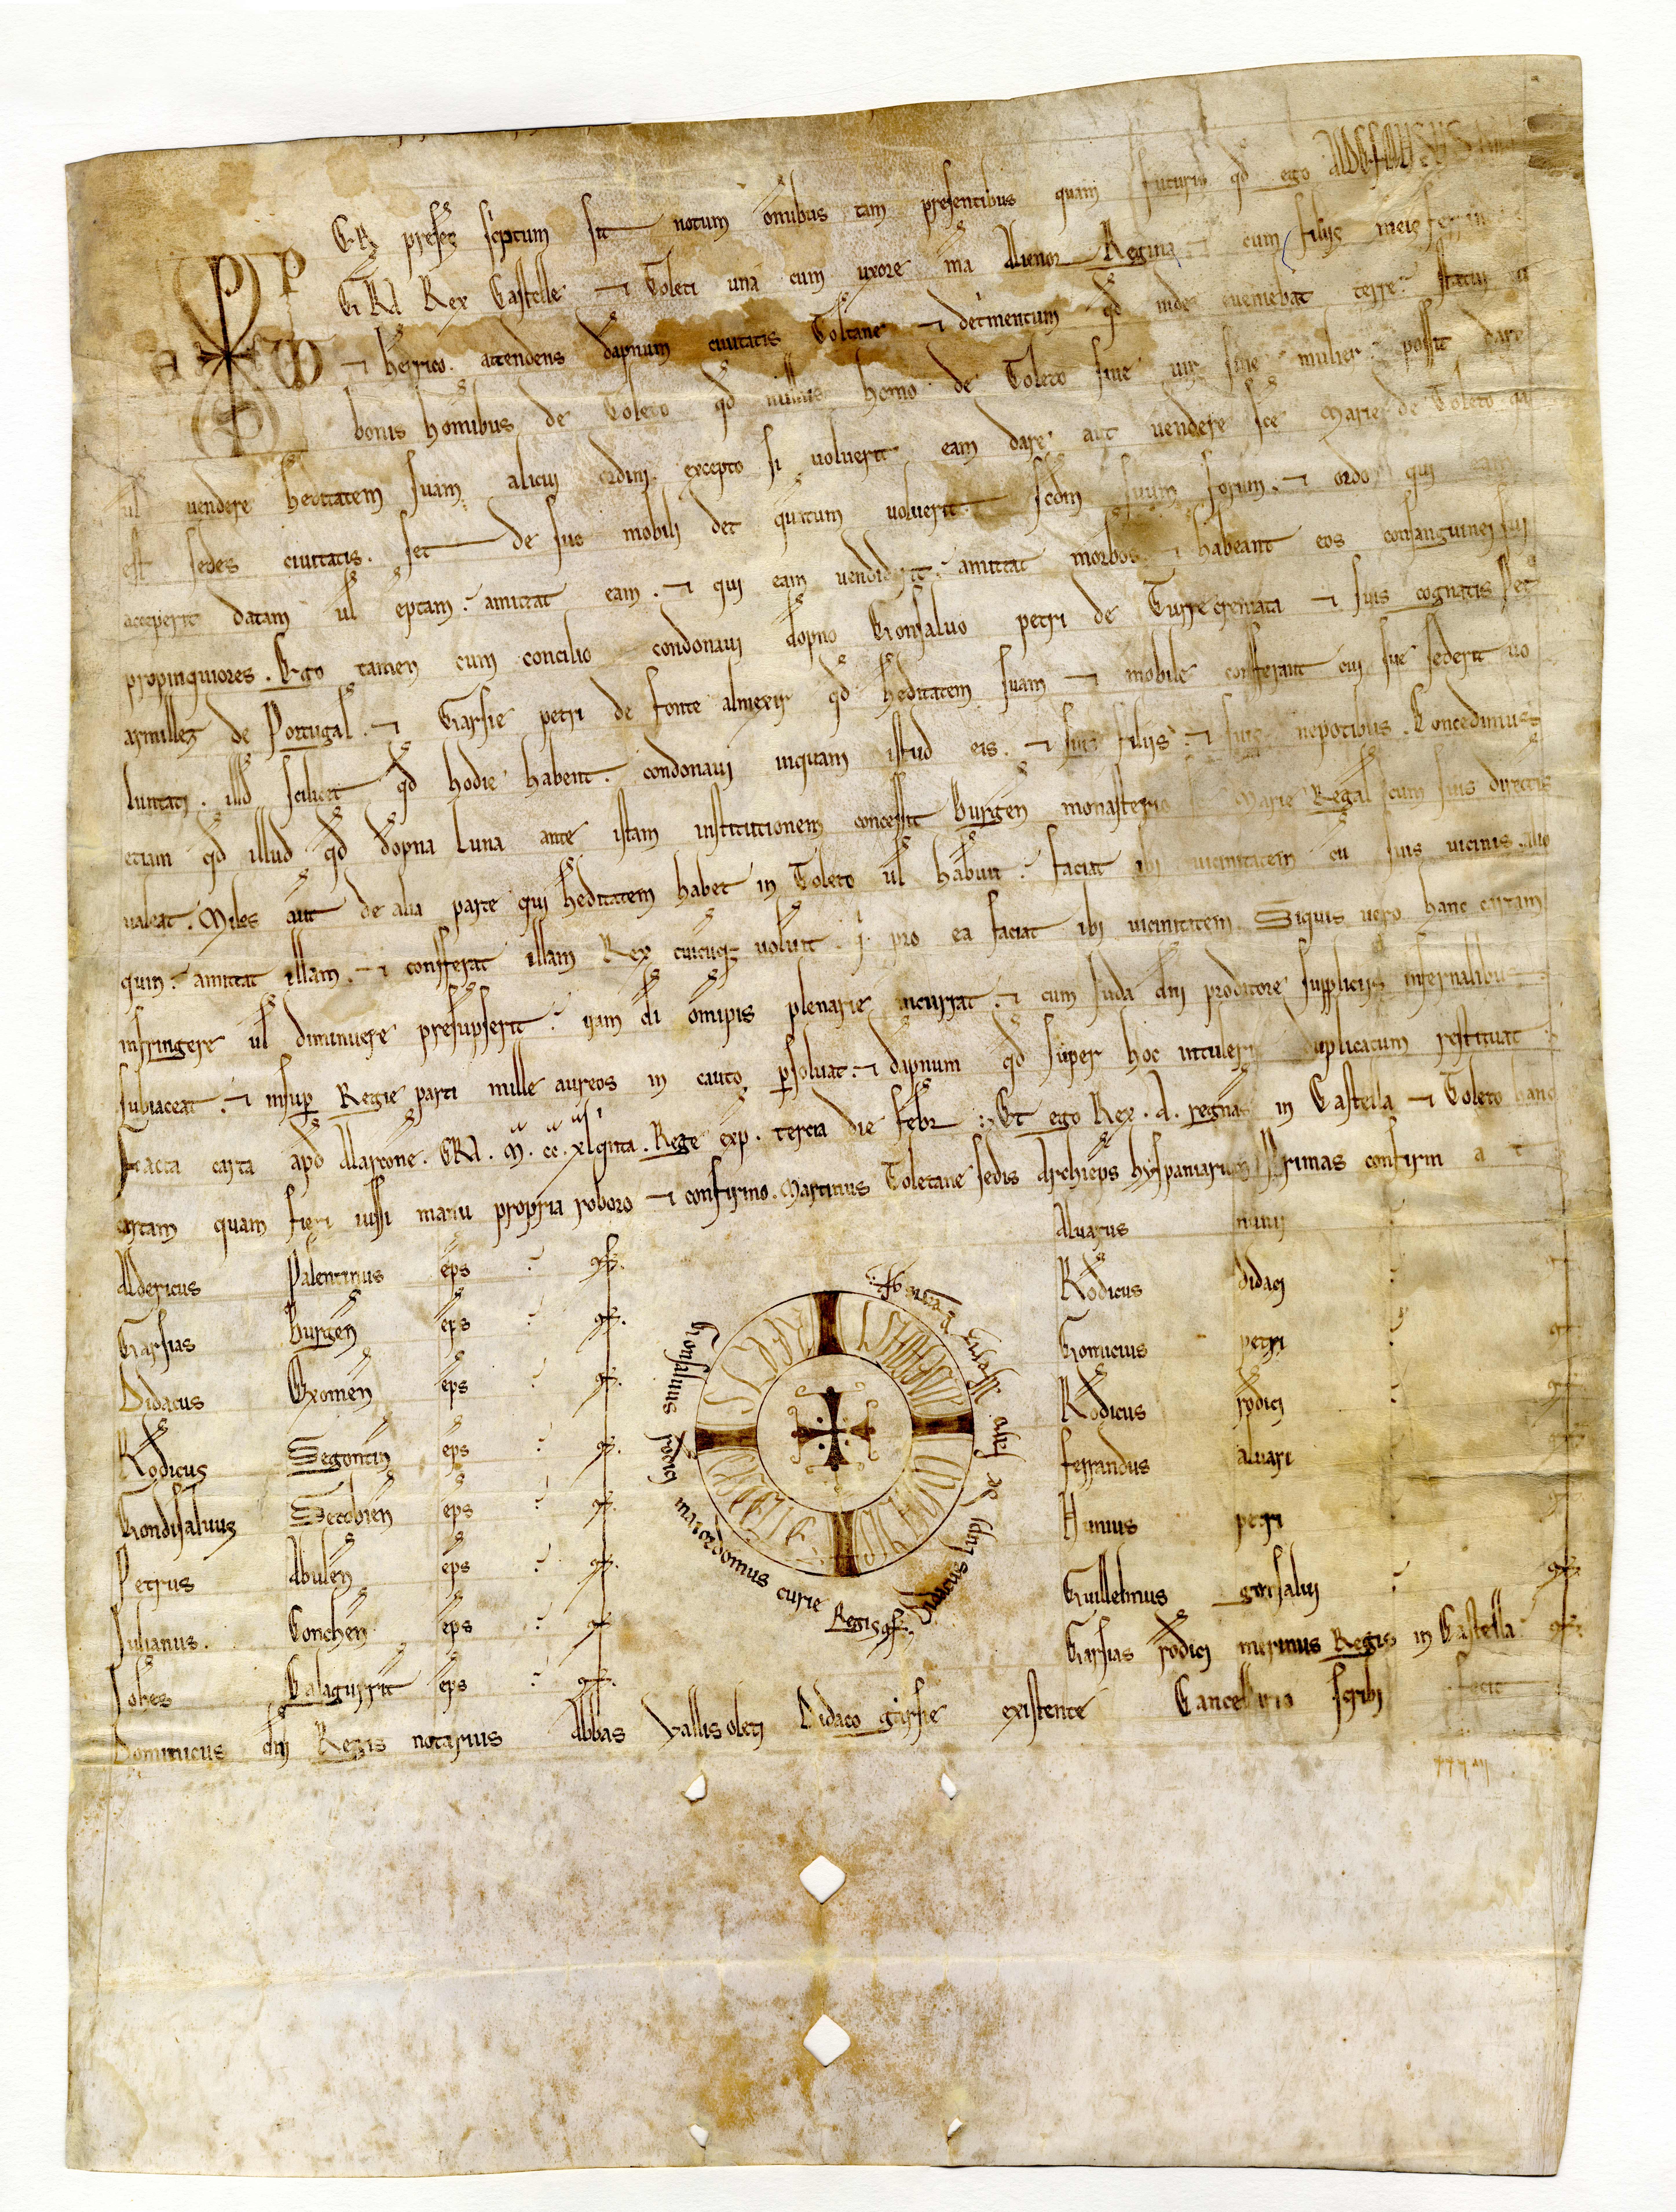 P ER preses scriptum sit notum omibus tam presentibus quam futuris qd ego ALDEFONSUS
GRA Rex Castelle et Toleti una cum uxore ma Alienor Regina et cum filijs meis
et henrico. attendens dapnum ciuitatis Toletane et detrimentum qd inde eueniebat terre. statui
bonis hominibus de Toleto qd nullus homo de Toleto siue uir siue mulier possit dare
ul uendere heditatem suam alicui ordini. excepto si uoluerit eam dare aut uendere sce Marie de Toleto
est sedes ciuitatis. set de suo mobili det quatum uoluerit. scdm suum forum. et ordo qui
acceperit datam ul eptam. amittat eam. et qui eam uendiderit. amittat morbos. et habeant eos consanguinei sui
propinquiores. Ego tamen cum concilio condonaui dopno Gonsaluo petri de Turre cremata et suis cognatis Pet
armillez de Portugal. et Garsie petri de fonte almexir qd heditatem suam et mobile confferant cui sue sederit uo
luntati. illd scilicet qd hodie habent. condonaui inquam istud eis. et suis filijs. et suis nepotibus. Concedimus
etiam qd illud qd dopna Luna ante istam institutionem concessit Burgen monasterio Marie Regal cum suis directis
ualeat. Miles aut de alia parte qui heditatem habet in Toleto ul habuit. faciat ibi uicinitatem cu suis uicinis. alio
quin. amittat illam. et confferat illam Rex cuicuq uoluit. q pro ea faciat ibi uicinitatem. Siquis uero hanc cartam
infringere ul diminuere presupserit. iram di omipis plenarie incurrat. et cum Iuda dni proditore suppliciis infernalibus
subiaceat. et insup Regie parti mille aureos in cauto psoluat. et dapnum qd super hoc intulerit duplicatum restituat
Facta carta apd Alarcone. ERA. M. cc. xl qnta. Rege exp. tercia die febr. Et ego Rex. A. regnas in Castella et Toleto hanc
cartam quam fieri iussi manu propria roboro et confirmo. Martinus Toletane sedis Archieps hyspaniarum Primas confirm a t
Aldericus Palentinus eps cf.
Garsias Burgen eps cf.
Didacus Oxomen eps cf.
Rodicus Segontin eps cf.
Gondisaluus Secobien eps cf.
Petrus Abulen eps cf.
Julianus. Conchen eps cf.
Johes Calagurrit eps cf.
Gonsaluus rodici maiordomus curie Regis cf.
Didacus lupi de faro alferiz Regis confirmat
Aluarus nunij
Rodicus didaci
Gomicius petri
Rodicus rodici
ferrandus aluari
petri
Guillelmus gonsalui cf
Garsias rodici merinus Regis in Castella cf
Dominicus dni Regis notarius Abbas Vallisoleti Didaco garsie existente Cancellario scribi fecit